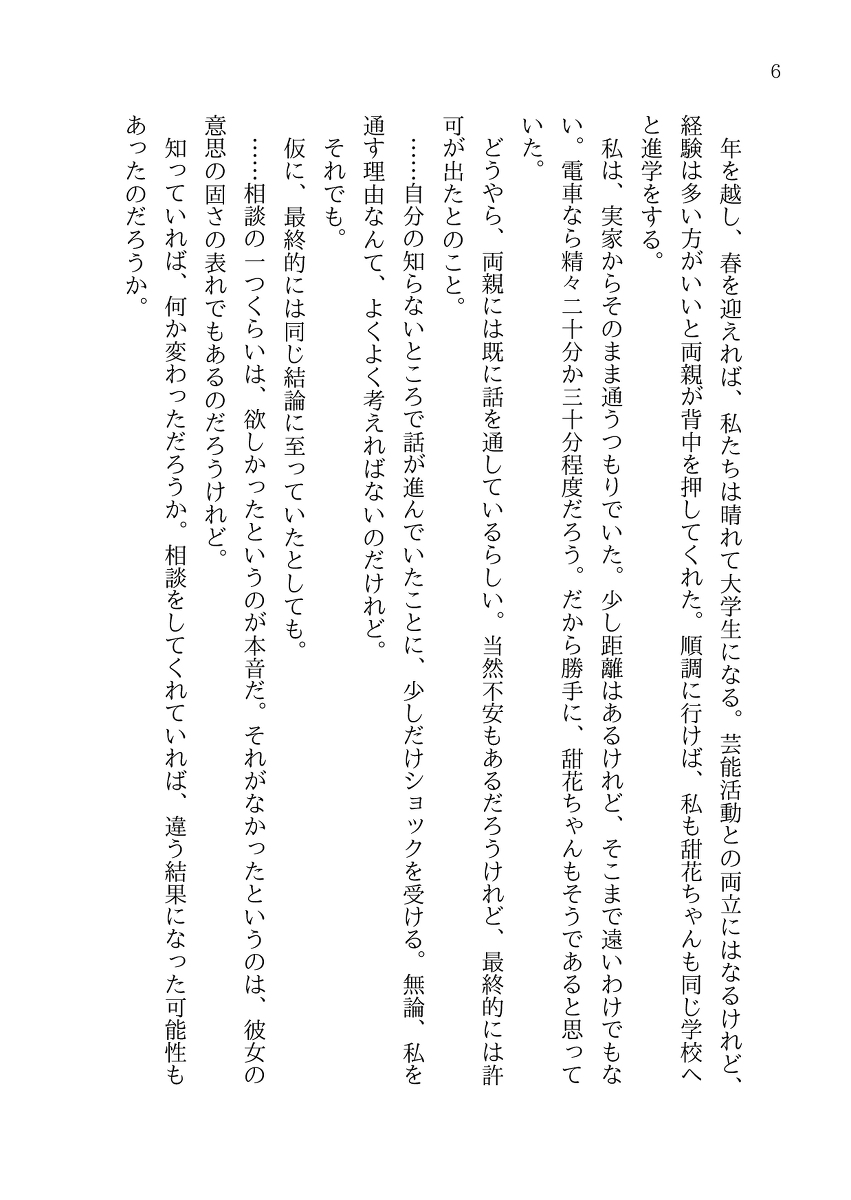 6
年を越し、春を迎えれば、私たちは晴れて大学生になる。芸能活動との両立にはなるけれど、
経験は多い方がいいと両親が背中を押してくれた。順調に行けば、私も甜花ちゃんも同じ学校へ
と進学をする。
私は、実家からそのまま通うつもりでいた。少し距離はあるけれど、そこまで遠いわけでもな
い。電車なら精々二十分か三十分程度だろう。だから勝手に、甜花ちゃんもそうであると思って
いた。
どうやら、両親には既に話を通しているらしい。当然不安もあるだろうけれど、最終的には許
可が出たとのこと。
……自分の知らないところで話が進んでいたことに、少しだけショックを受ける。無論、私を
通す理由なんて、よくよく考えればないのだけれど。
それでも。
仮に、最終的には同じ結論に至っていたとしても。
……相談の一つくらいは、欲しかったというのが本音だ。それがなかったというのは、彼女の
意思の固さの表れでもあるのだろうけれど。
知っていれば、何か変わっただろうか。相談をしてくれていれば、違う結果になった可能性も
あったのだろうか。